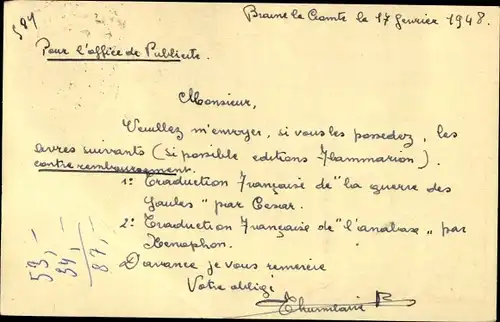 584
Braine le Comte le 17 fevrier 1948.
Pour l'office de Publicite.
Monsieur,
Veuillez m'envoyer, si vous les possedez, les
livres suivants (si possible editions Flammarion).
contre remboursement.
1º Traduction Française de "la guerre des
Gaules" par Cesar.
2º Traduction Française de "l'anabase" par
Xenophon.
D'avance je vous remercie
Votre obligé
53,-
34,-
87,-